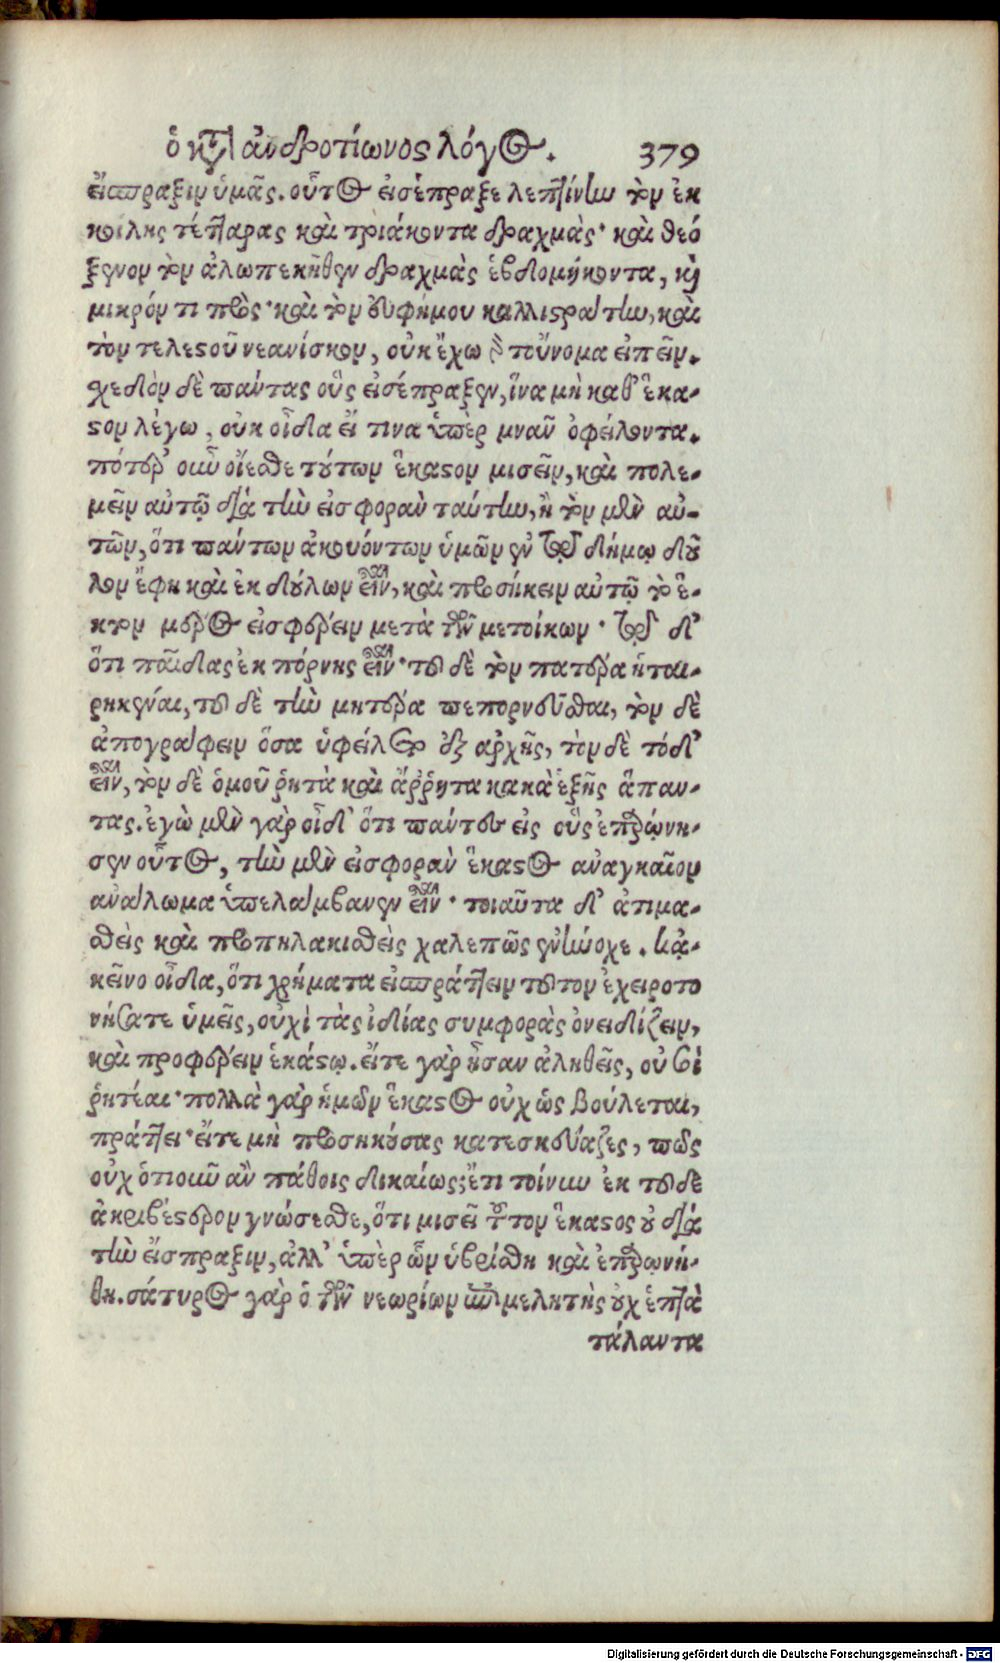 ὁ κατ' ἀνδροτίωνος λόγος. 379
εἴσπραξιν ὑμᾶς. οὗτος εἰσέπραξε λεπτίνην τὸν ἐκ
κοίλης τέτταρας καὶ τριάκοντα δραχμὰς· καὶ θεό
ξενον τὸν ἀλωπεκῆθεν δραχμὰς ἑβδομήκοντα, καὶ
μικρόν τι πρὸς· καὶ τὸν εὐφήμου καλλιστρατην, καὶ
τὸν τελεστοῦ νεανίσκον, οὐκ ἔχω δὲ τοὔνομα εἰπεῖν.
χεδὸν δὲ πάντας οὓς εἰσέπραξεν, ἵνα μὴ καθ' ἕκα-
στον λέγω, οὐκ οἶδα εἴ τινα ὑπὲρ μναῦ ὀφείλοντα.
πότερ' οὖν οἴεσθε τούτων ἕκαστον μισεῖν, καὶ πολε-
μεῖν αὐτῷ διά τὴν εἰσφορὰν ταύτην, ἢ τὸν μὲν αὐ-
τῶν, ὅτι πάντων ἀκουόντων ὑμῶν ἐν τῷ δήμῳ δοῦ
λον ἔφη καὶ ἐκ δούλων εἶναι, καὶ προσήκειν αὐτῷ τὸ ἕ-
κτον μέρος εἰσφέρειν μετὰ τῶν μετοίκων· τῷ δ'
ὅτι παῖδας ἐκ πόρνης εἶναι· τοῦ δὲ τὸν πατέρα ἡται-
ρηκέναι, τοῦ δὲ τὴν μητέρα πεπορνεῦσθαι, τὸν δὲ
ἀπογράφειν ὅσα ὑφείλετο ἐξ αρχῆς, τὸν δὲ τόδ'
εἶναι, τὸν δὲ ὁμοῦ ῥητὰ καὶ ἄῤῥητα κακὰ ἑξῆς ἅπαν-
τας. ἐγὼ μὲν γὰρ οἶδ' ὅτι πάντες εἰς οὓς ἐπαρῴνη-
σεν οὗτος, τὴν μὲν εἰσφορὰν ἕκαστος ἀναγκαῖον
ανάλωμα ὑπελάμβανεν εἶναι· τοιαῦτα δ' ἀτιμα-
σθεὶς καὶ προπηλακισθεὶς χαλεπῶς ἐνήνοχε. κἀ-
κεῖνο οἶδα, ὅτι χρήματα εἰσπράττειν τοῦτον ἐχειροτο
νήσατε ὑμεῖς, οὐχὶ τὰς ἰδίας συμφορὰς ὀνειδίζειν,
καὶ προφέρειν ἑκάστῳ. εἴτε γὰρ ἦσαν ἀληθεῖς, οὐ σὶ
ῥητέαι· πολλὰ γὰρ ἡμῶν ἕκαστος οὐχ ὡς βούλεται,
πράττει· εἴτε μὴ προσηκούσας κατεσκεύαζες, πῶς
οὐχ ὁτιοῦν ἂν πάθοις δικαίως; ἔτι τοίνυν ἐκ τοῦδε
ἀκριβέστερον γνώσεσθε, ὅτι μισεῖ τοῦτον ἕκαστος οὐ διά
τὴν εἴσπραξιν, ἀλλ' ὑπὲρ ὧν ὑβρίσθη καὶ ἐπαρῳνή-
θη. σάτυρος γὰρ ὁ τῶν νεωρίων ἐπιμελητὴς οὐχ ἑπτὰ
τάλαντα
Digitalisierung gefördert durch die Deutsche Forschungsgemeinschaft - DFG